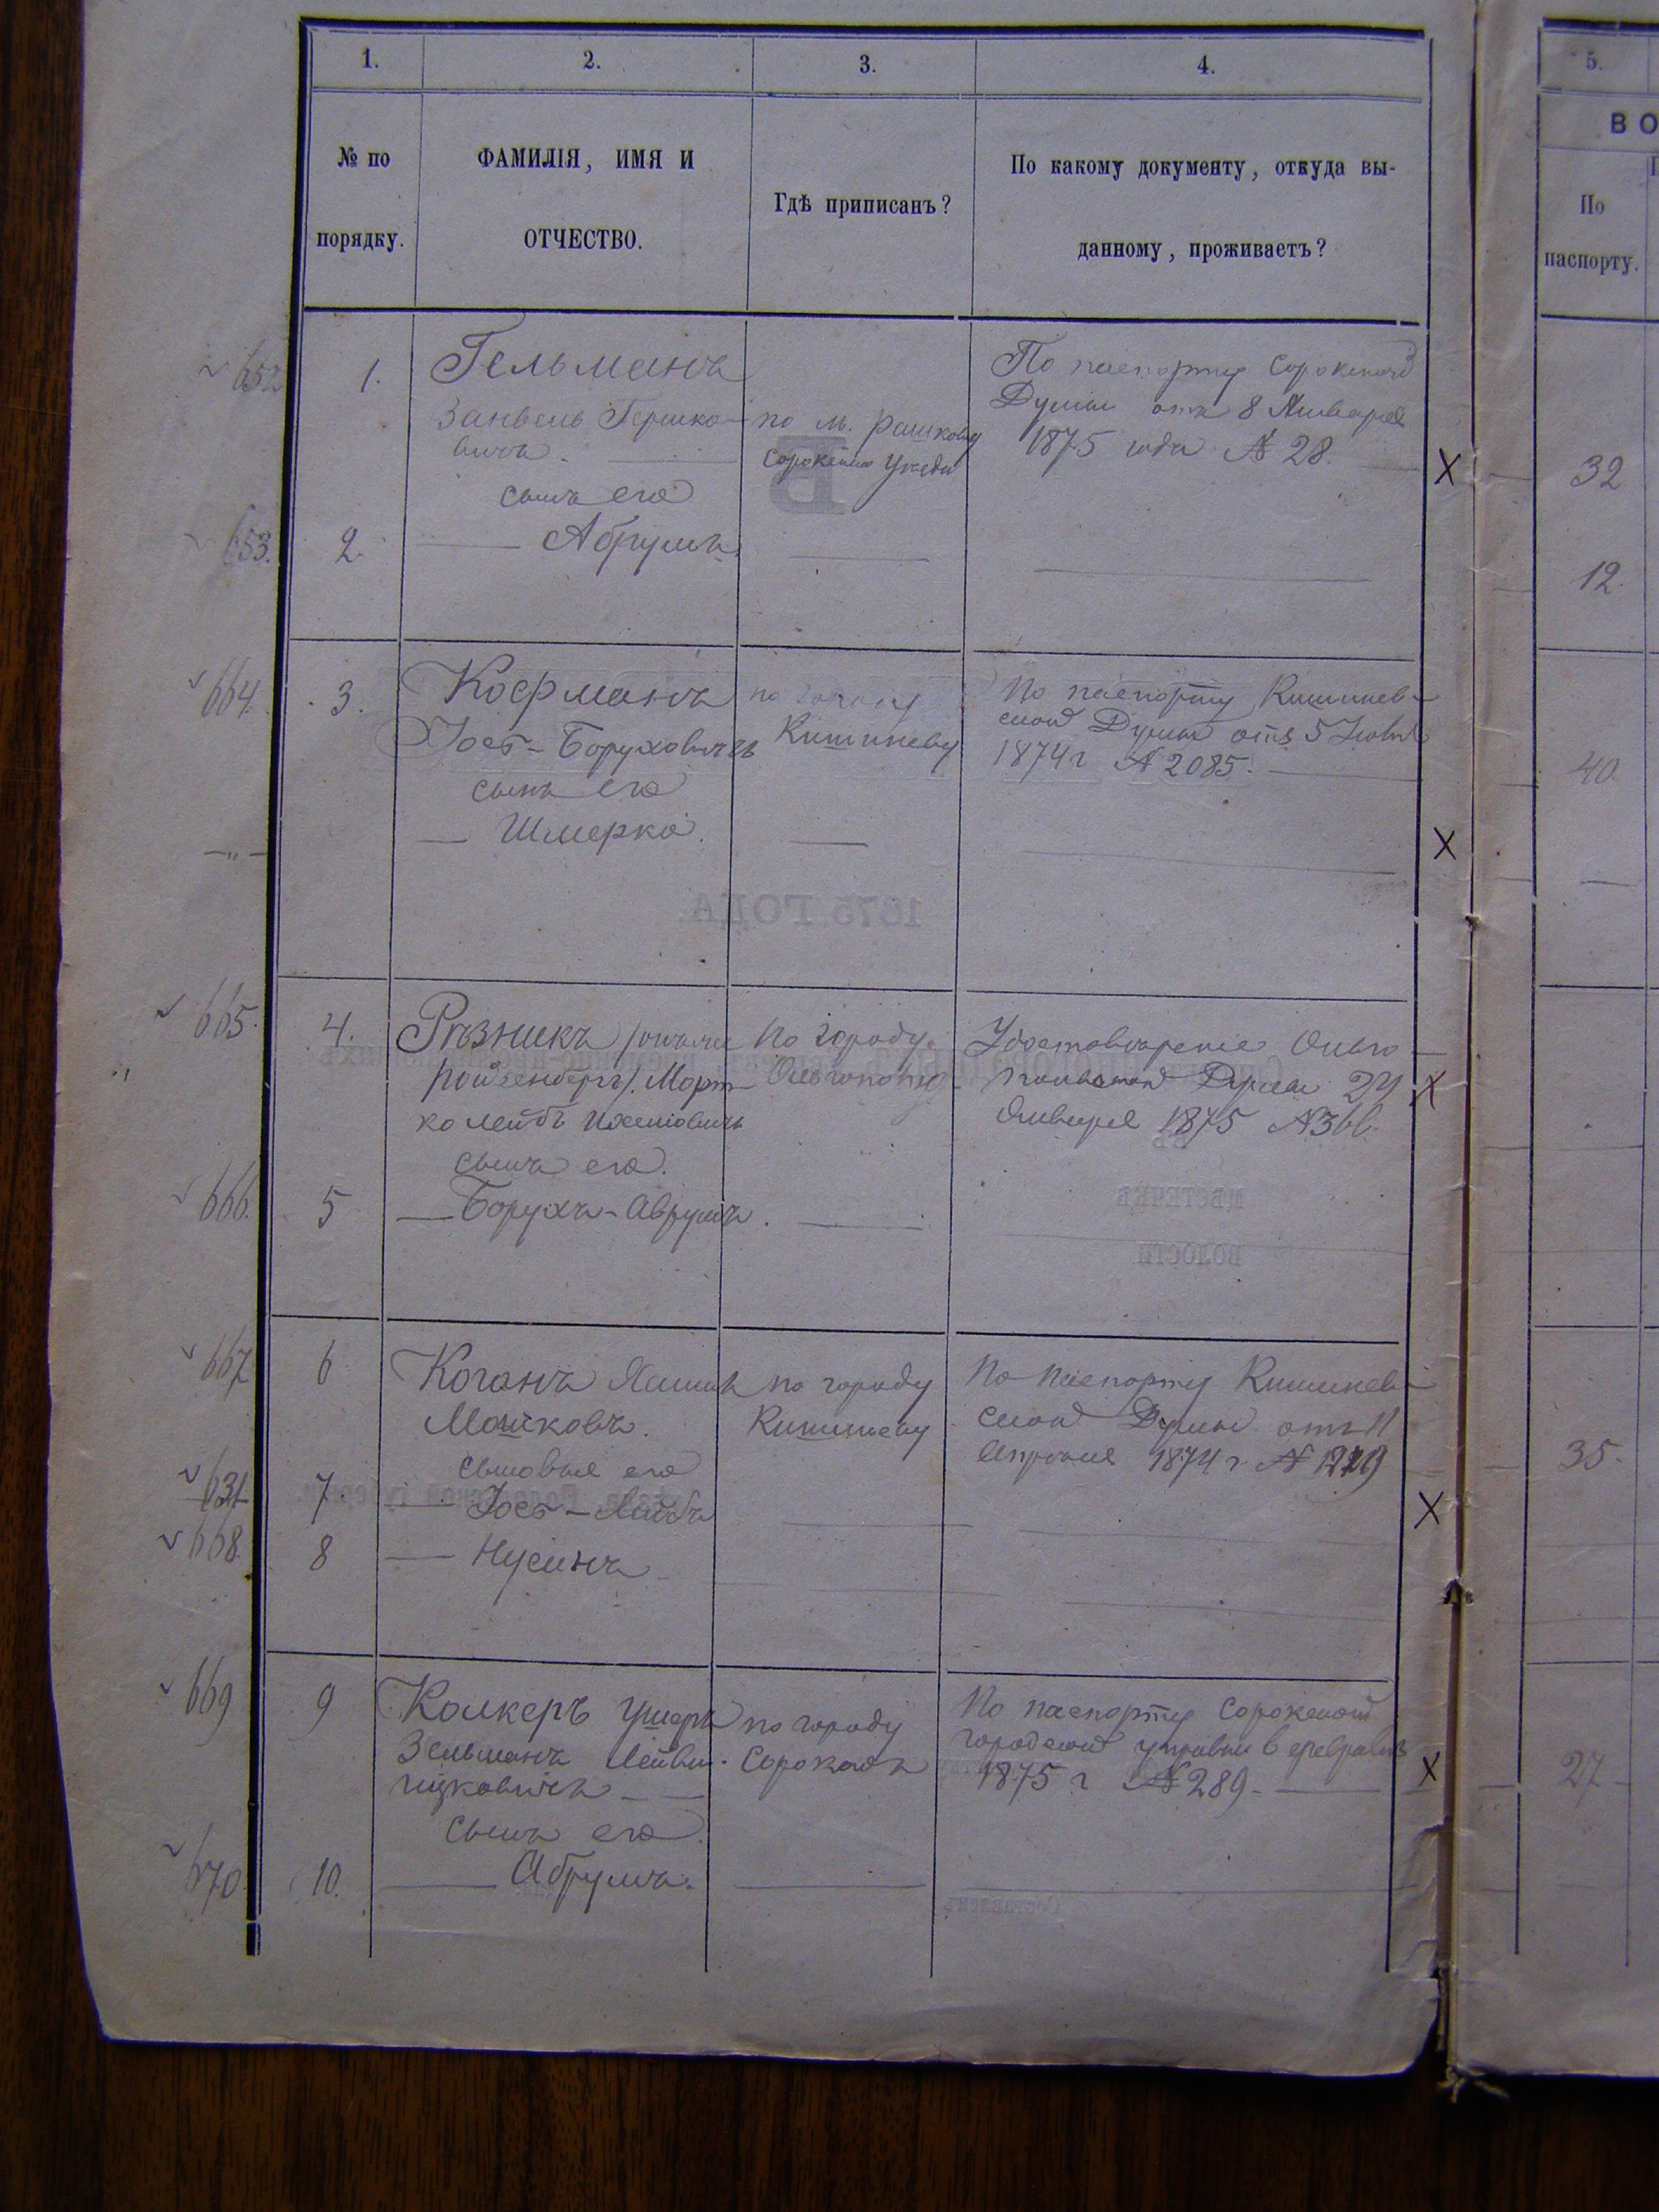 1.
2.
3.
4.
№ по
порядку.
ФАМИЛІЯ, ИМЯ И
ОТЧЕСТВО.
Гдѣ приписанъ?
По какому документу, откуда вы-
данному, проживаетъ?
652
1.
Гельманъ
Занвель Гершко-
вичъ.
по м. Рашкову
Сорокскаго уѣзда
По паспорту Сорокской
Думы отъ 8 Января
1875 года № 28.
X
сынъ его
653.
2.
Абрумъ.
664.
3.
Кофманъ
Йосъ-Боруховичъ
по городу
Кишиневу
По паспорту Кишинев-
ской Думы отъ 5
1874 г № 2085.
сынъ его
Шмерко.
X
1875 ГОДА.
665.
4.
Рѣзникъ
Ройзенбергъ). Морт-
ко Лейбъ
По городу
Ольгополю
Удостовѣреніе Ольго-
польской Думы 24
Января 1875 № 366.
X
сынъ его.
666.
5
Борухъ-Аврумъ.
МѢСТЕЧКѢ
ВОЛОСТИ
667
6
Коганъ Хаимъ
Мошковъ.
по городу
Кишиневу
По паспорту Кишинев-
ской Думы отъ 11
Апрѣля 1874 г. №
сыновья его
631
7.
Йосъ-Лейбъ
X
668.
8
Нусинъ
669
9
Колкеръ Ушеръ
Зельманъ
по городу
Сорокамъ
По паспорту Сорокской
городской управы 6 февраля
1875 г № 289-
X
сынъ его.
670.
10.
Абрумъ.
5.
ВО
По
паспорту.
32
12.
40.
35.
27